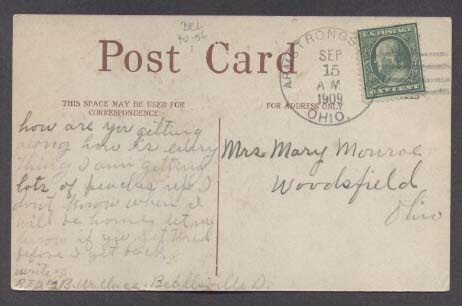 DEL
40-56
Post Card
THIS SPACE MAY BE USED FOR
CORRESPONDENCE
FOR ADDRESS ONLY
ARMSTRONGS
SEP
15
AM
1909
OHIO.
U.S. POSTAGE
ONE CENT
how are you getting
along how is every
thing I am getting
lots of peaches up I
dont know when I
will be home let me
know if you get tired
before I get back
write
B. Wallace, Beallsville O.
Mrs Mary Monroe
Woodsfield
Ohio